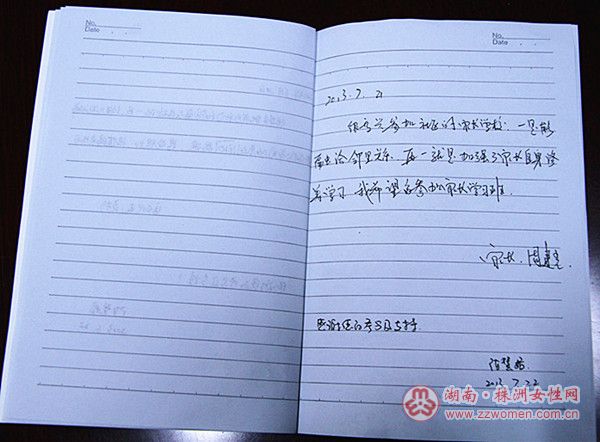 No.
Date
No.
Date
2013.7.21
很高兴参加社区的家长学校.一是能
邻里关系.再一就是加强了家长自身修
养学习.我希望多参加家长学习班.
家长.周
感谢您的参与及支持
2013.7.22
湖南·株洲女性网
www.zzwomen.com.cn